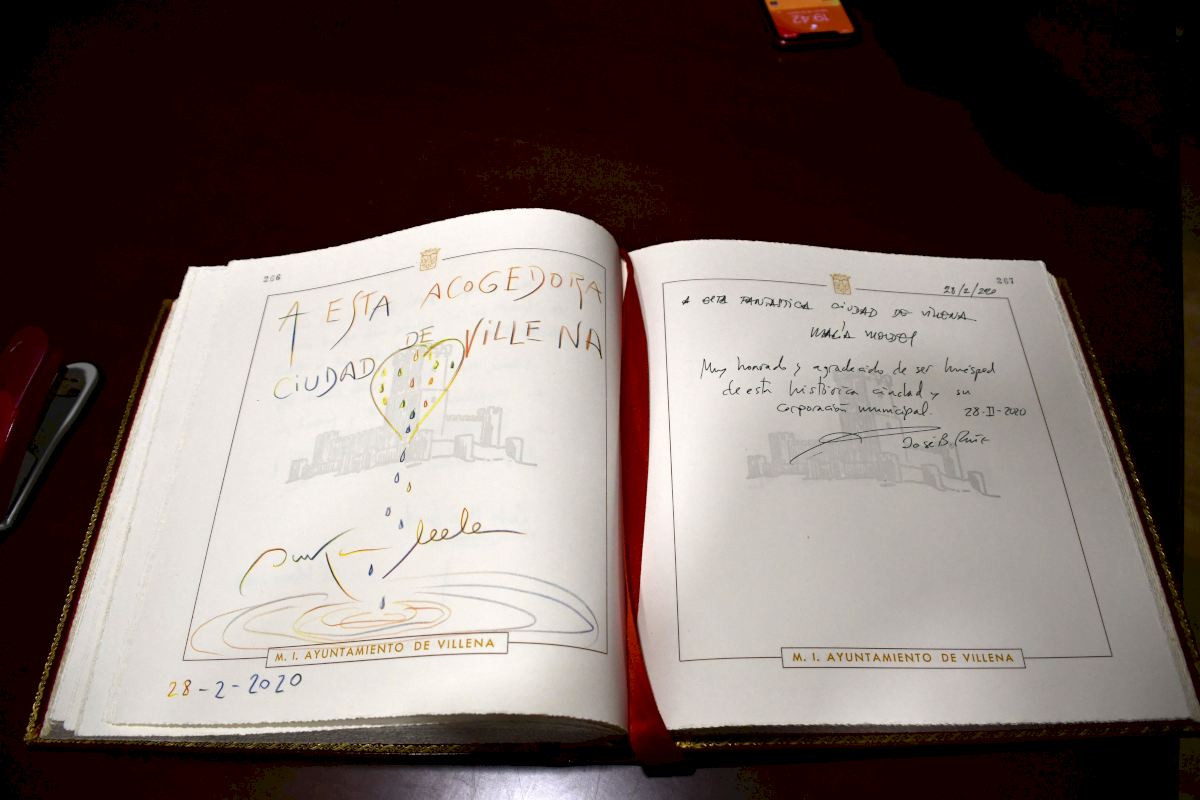 19:42
266
A ESTA ACOGEDORA
CIUDAD DE VILLENA
M. I. AYUNTAMIENTO DE VILLENA
28-2-2020
267
28/2/2020
A ESTA FANTASTICA CIUDAD DE VILLENA
Muy honrado y agradecido de ser huésped
de esta histórica ciudad y su
corporación municipal. 28-II-2020
José B. Ruiz
M. I. AYUNTAMIENTO DE VILLENA